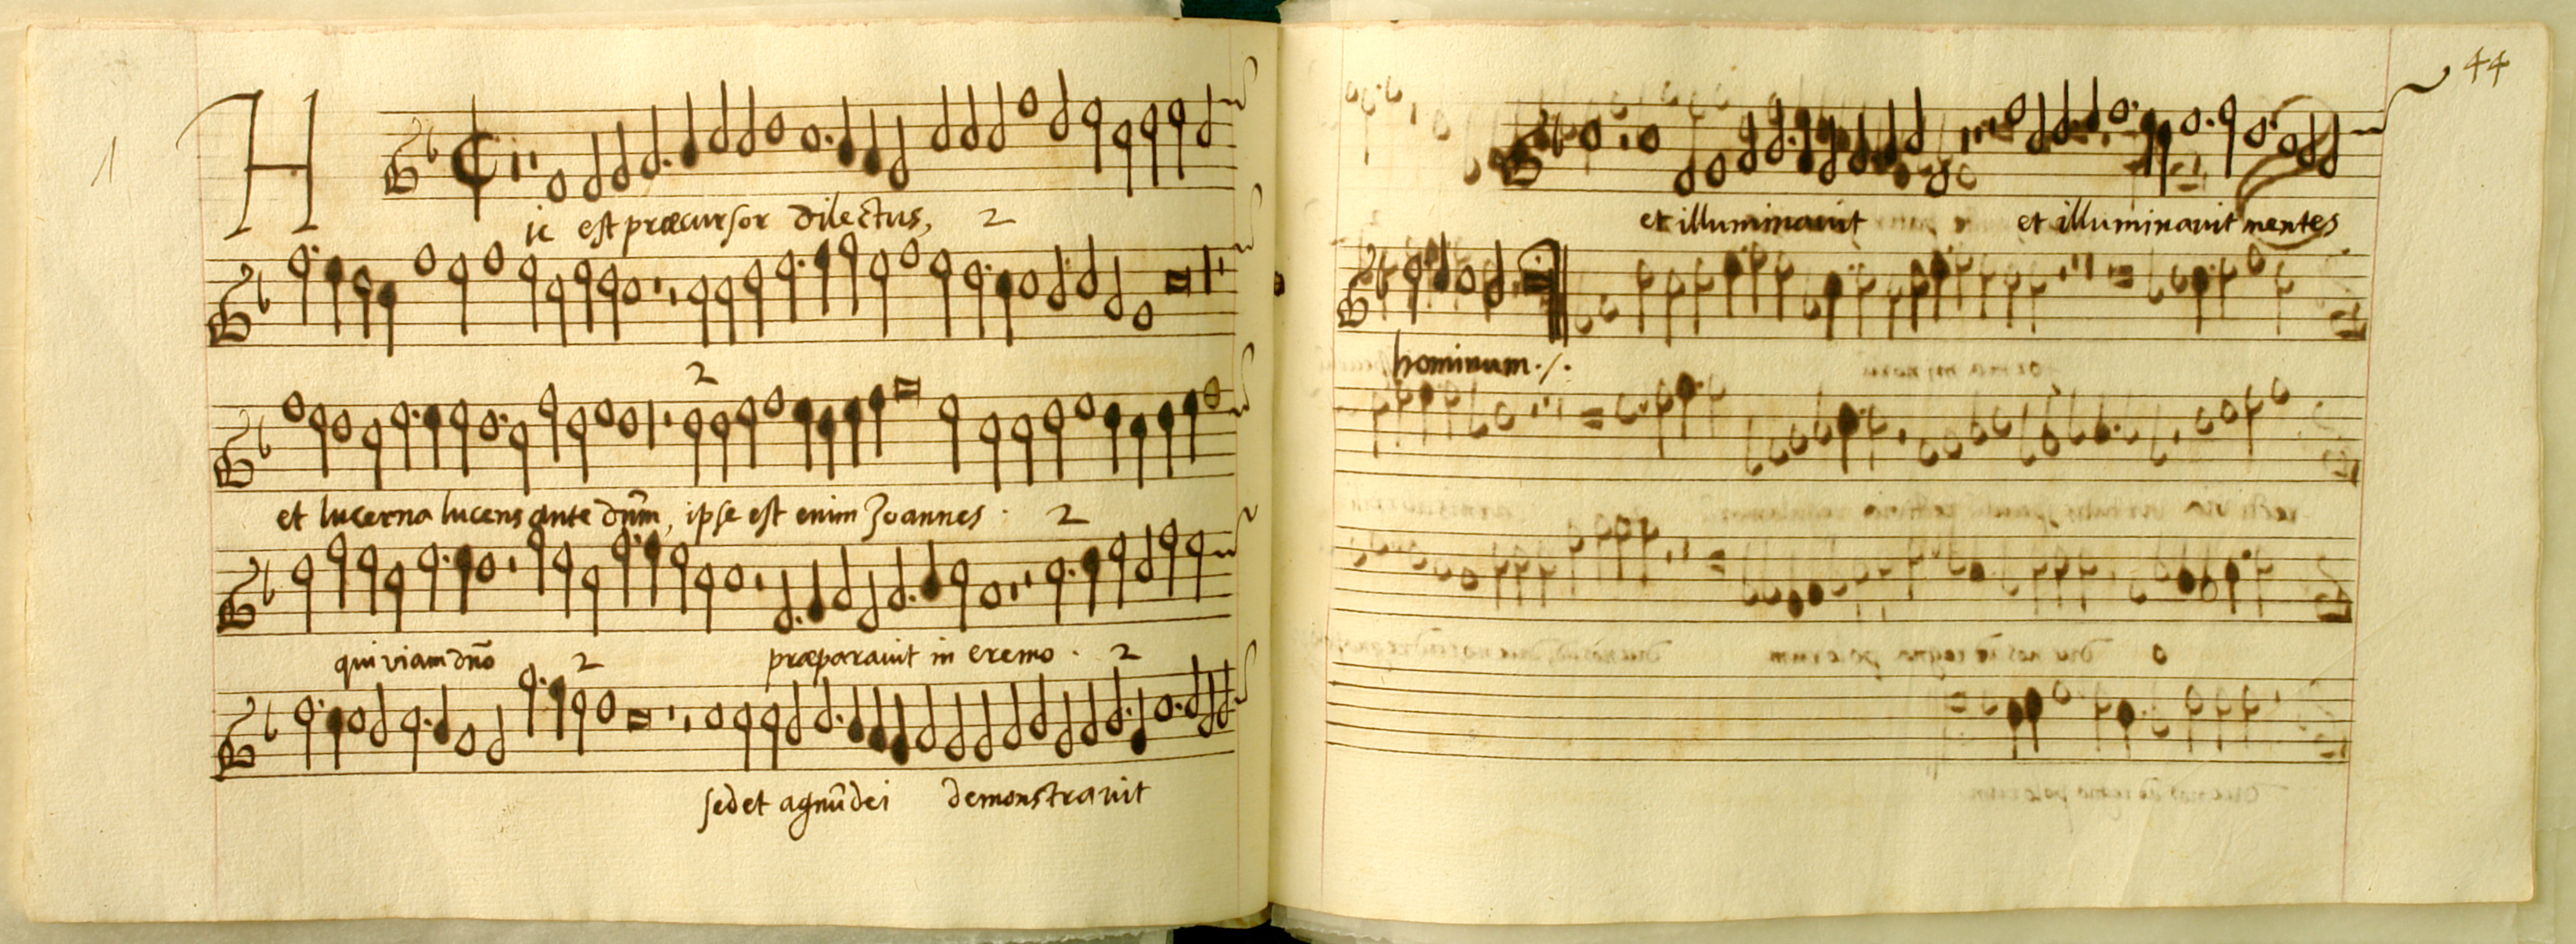 1
Hic est præcursor dilectus, 2
2
et lucerna lucens ante dñm, ipse est enim Joannes · 2
qui viam dño 2 præparavit in eremo · 2
sed et agnũ dei demonstravit
44
et illuminavit et illuminavit mentes
hominum ·/·